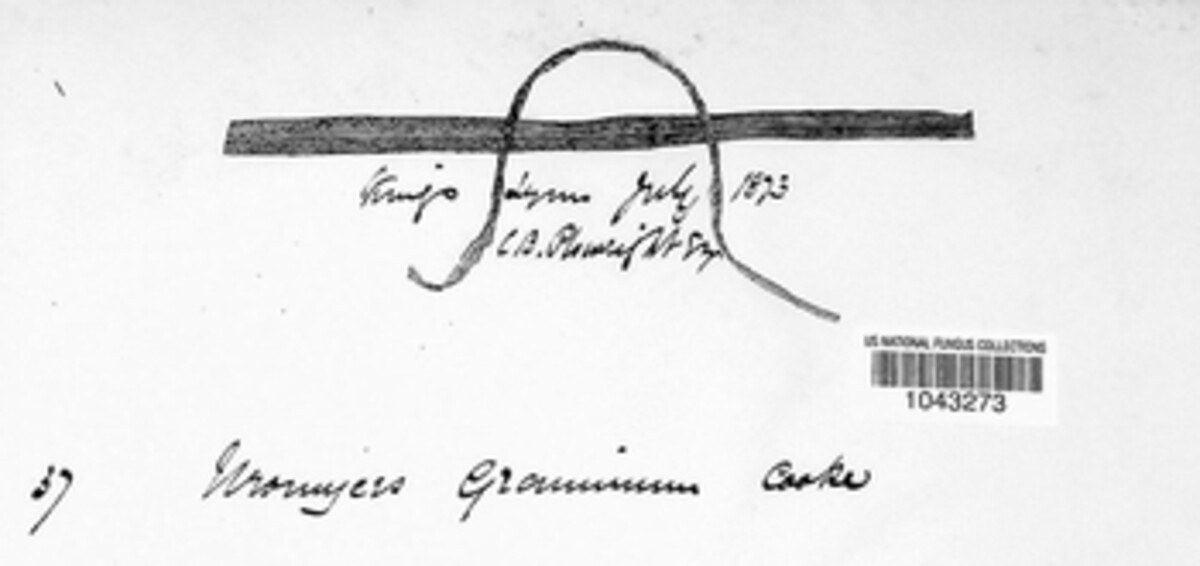 Kings Lynn July 1873
C B. Plowright Esq
US NATIONAL FUNGUS COLLECTIONS
1043273
37 Uromyces Graminum Cooke